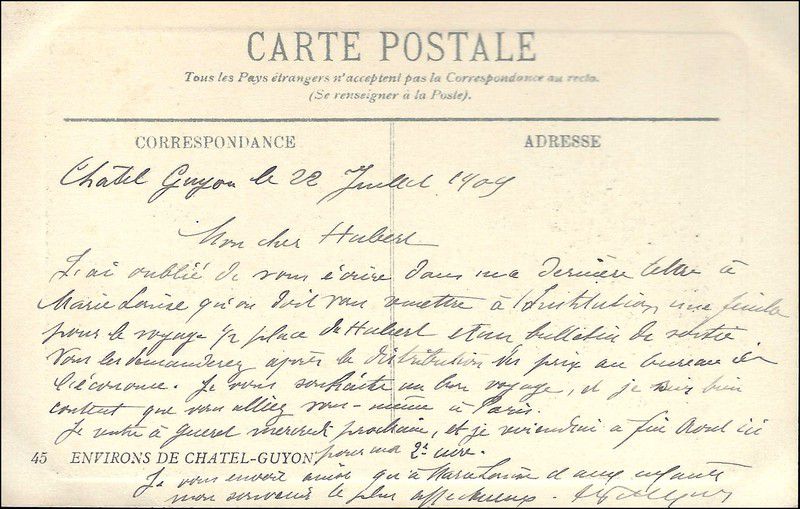 CARTE POSTALE
Tous les Pays étrangers n'acceptent pas la Correspondance au recto.
(Se renseigner à la Poste).
CORRESPONDANCE
ADRESSE
Châtel Guyon le 22 Juillet 1909
Mon cher Hubert
J'ai oublié de vous écrire dans ma dernière lettre à
Marie Louise qu'on doit vous remettre à l'Institution une feuille
pour le voyage 1/2 place de Hubert et un bulletin de sortie
Vous les demanderez après la distribution des prix au bureau de
l'économe. Je vous souhaite un bon voyage, et je suis bien
content que vous alliez vous-même à Paris.
Je rentre à Guéret mercredi prochain, et je reviendrai à fin Août ici
pour ma 2e cure.
45 ENVIRONS DE CHATEL-GUYON
Je vous envoie ainsi qu'à Marie Louise et aux enfants
mon souvenir le plus affectueux.